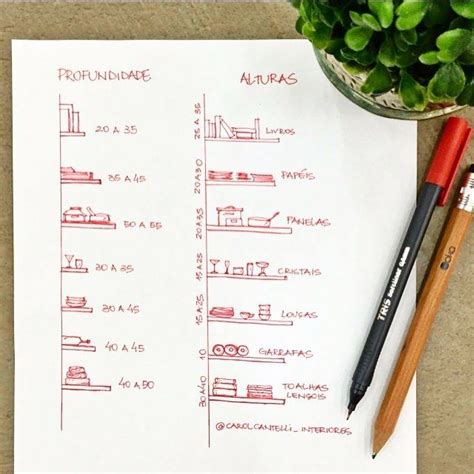 PROFUNDIDADE
20 A 35
35 A 45
50 A 55
30 A 35
30 A 45
40 A 45
40 A 50
ALTURAS
25 A 35
LIVROS
20 A 30
PAPÉIS
20 A 35
PANELAS
15 A 25
CRISTAIS
15 A 25
LOUÇAS
10
GARRAFAS
30 A 40
TOALHAS
LENÇOIS
@CAROLCANTELLI_INTERIORES
TRIS